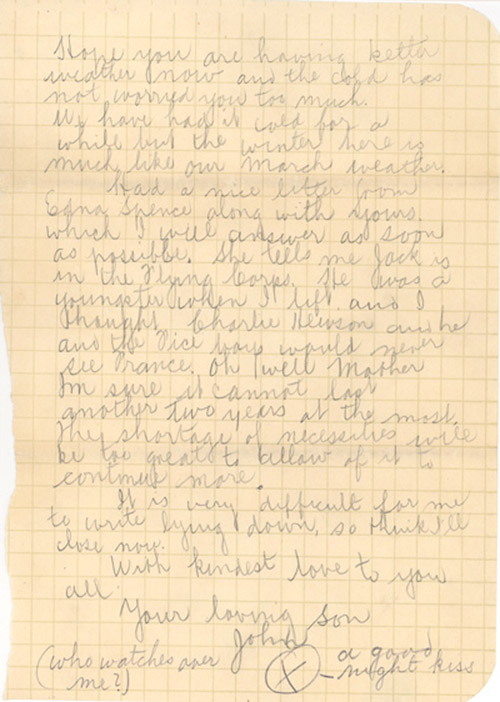 Hope you are having better
weather now and the cold has
not worried you too much.
We have had it cold for a
while but the winter here is
much like our March weather.
Had a nice letter from
Edna Spence along with yours.
which I will answer as soon
as possible. She tells me Jack is
in the Flying Corps. He was a
youngster when I left. and I
thought Charlie Hewson and he
and the Vice boys would never
see France. Oh well Mother
I'm sure it cannot last
another two years at the most.
The shortage of necessities will
be too great to allow of it to
continue more.
It is very difficult for me
to write lying down, so think I'll
close now.
With kindest love to you
all.
Your loving son
John
(who watches over
me?)
X – a good
night kiss